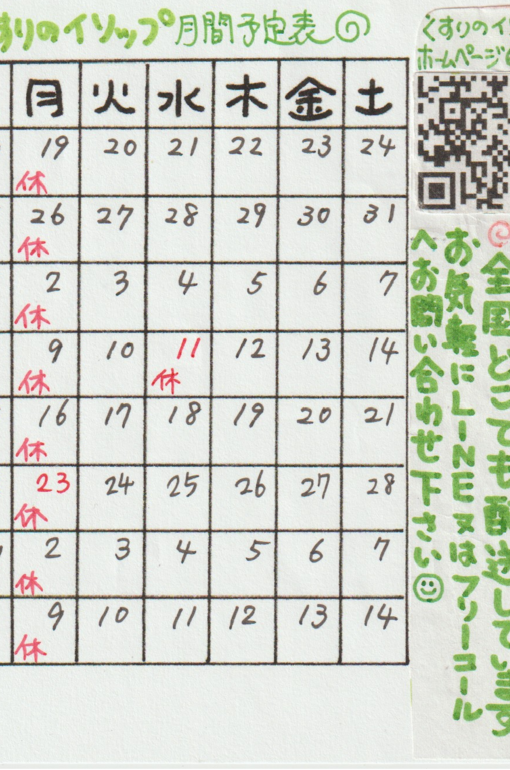 すりのイソップ月間予定表
月 火 水 木 金 土
19 20 21 22 23 24
休
26 27 28 29 30 31
休
2 3 4 5 6 7
休
9 10 11 12 13 14
休 休
16 17 18 19 20 21
休
23 24 25 26 27 28
休
2 3 4 5 6 7
休
9 10 11 12 13 14
休
くすりのイソ
ホームページ
全国どこでも配送しています
お気軽にLINE又はフリーコール
へお問い合わせ下さい